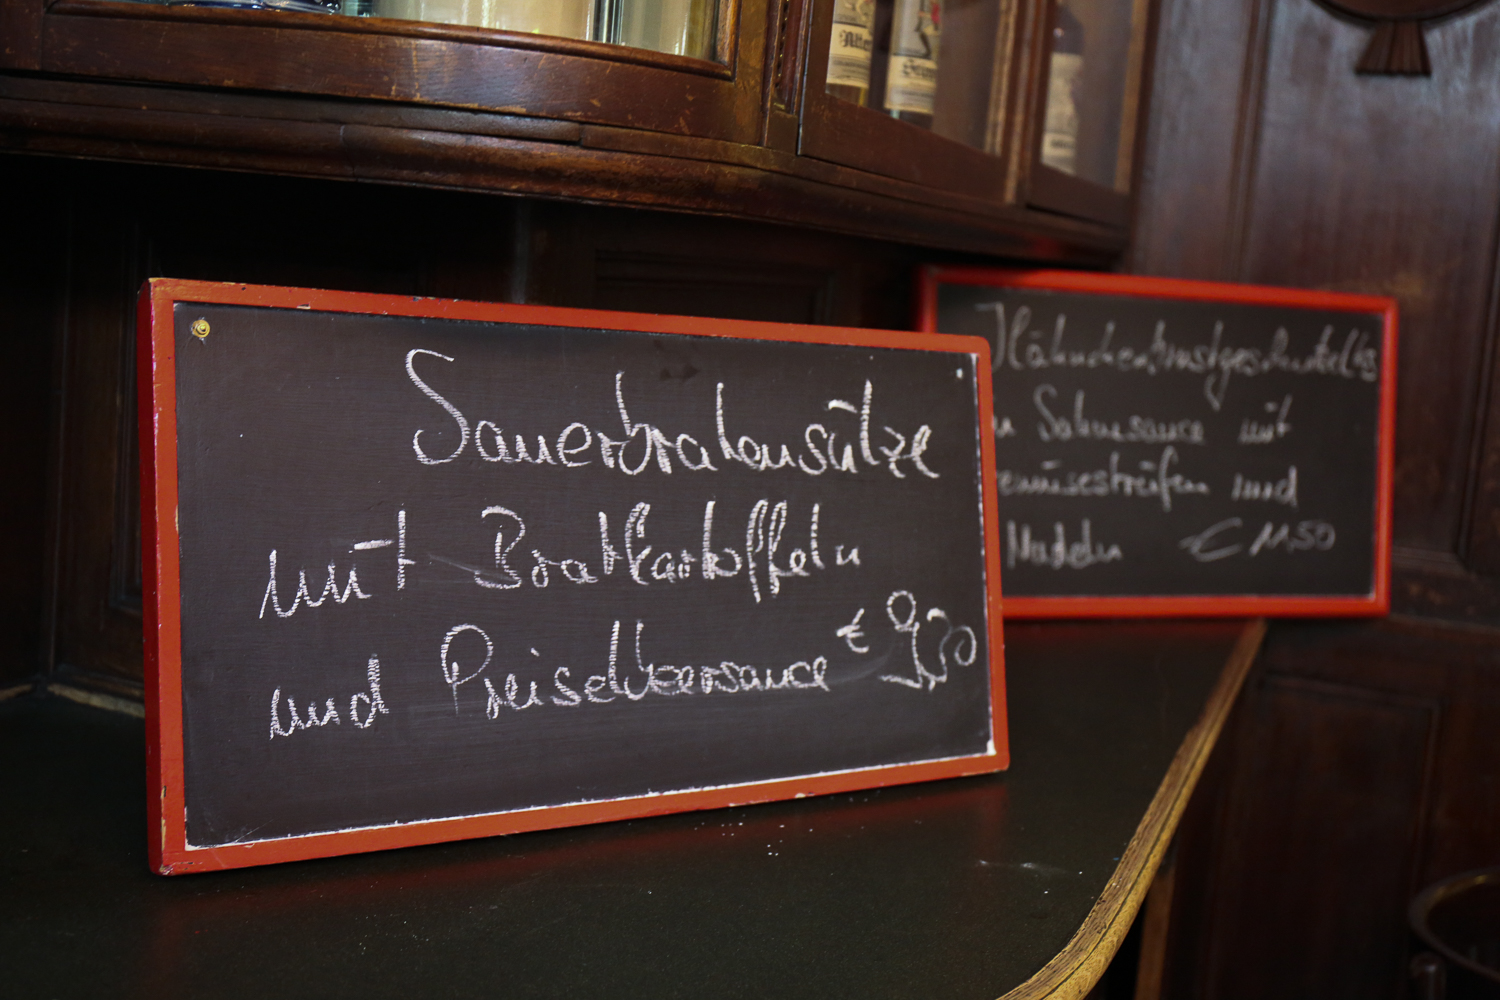 Sauerbratensütze
mit Bratkartoffeln
und Preiselbeersauce € 9,30
Hähnchenbrustgeschnetzeltes
Sahnesauce mit
emüsestreifen und
Nudeln € 11,50